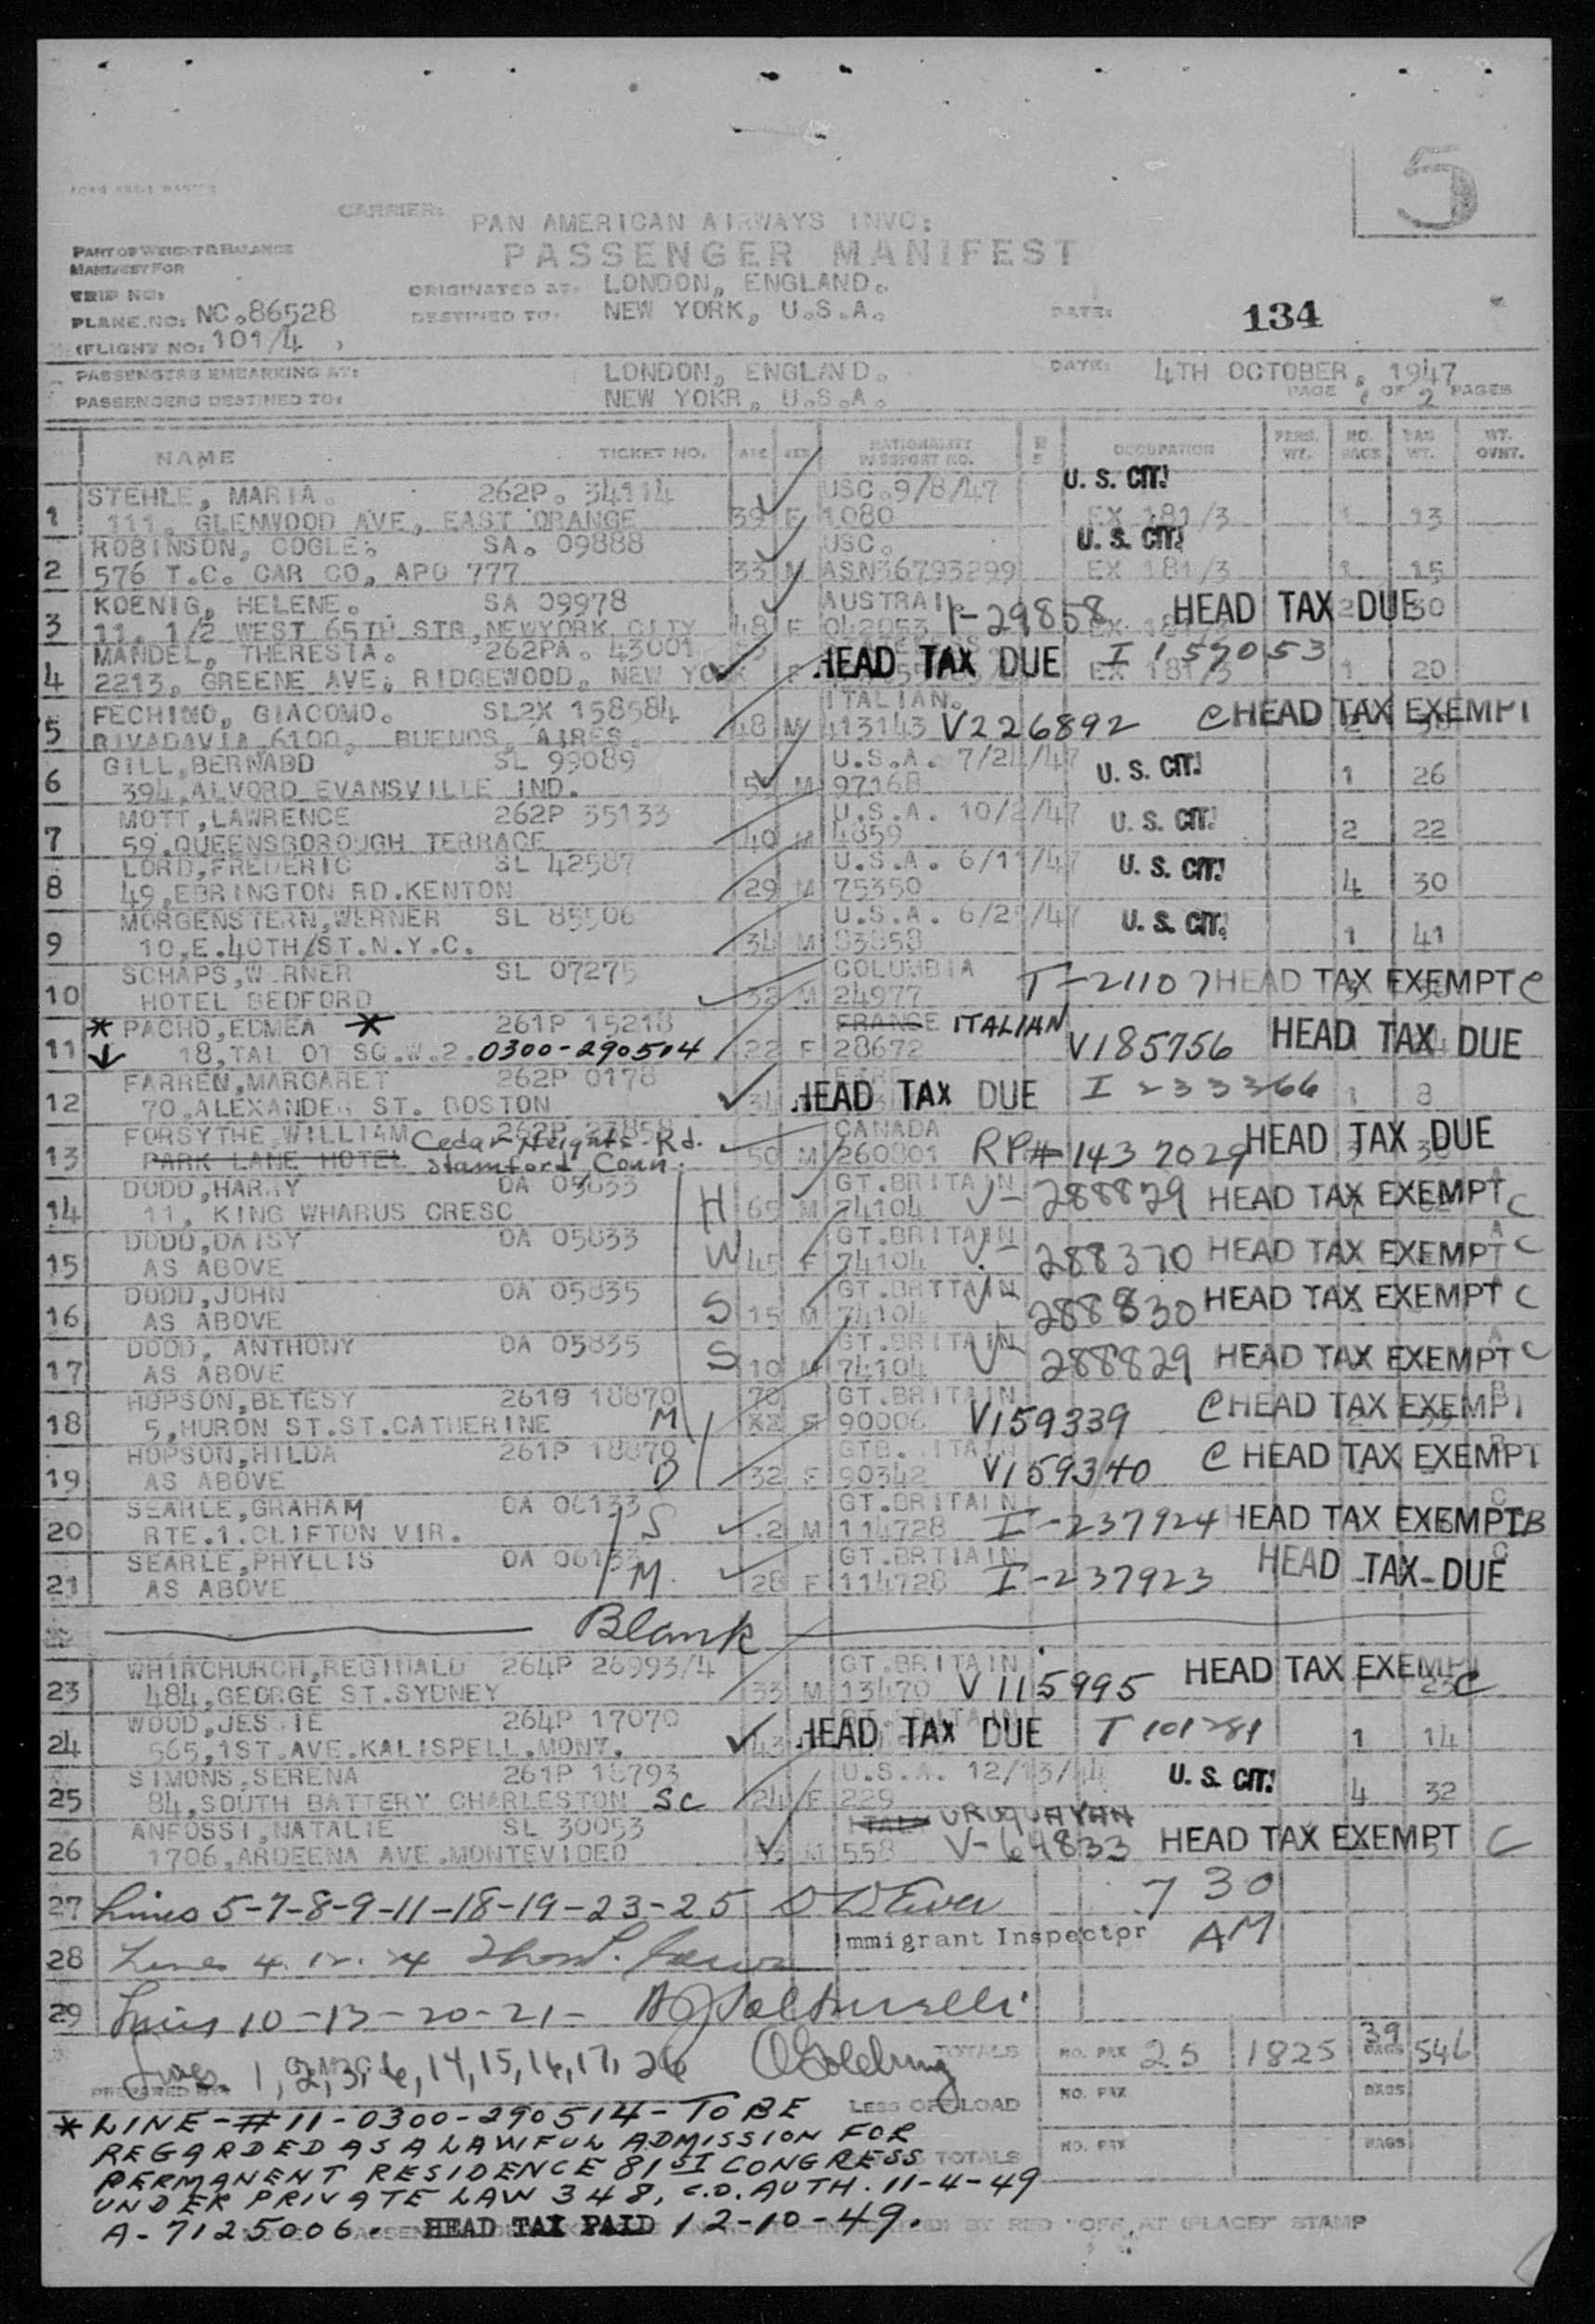 5
CARRIER: PAN AMERICAN AIRWAYS INVC:
PASSENGER MANIFEST
PART OF WEIGHT & BALANCE
MANIFEST FOR
TRIP NO:
PLANE NO: NC.86528
(FLIGHT NO: 101/4 )
ORIGINATED AT: LONDON, ENGLAND.
DESTINED TO: NEW YORK, U.S.A.
DATE: 134
PASSENGERS EMBARKING AT: LONDON, ENGLAND. DATE: 4TH OCTOBER, 1947
PASSENGERS DESTINED TO: NEW YOKR, U.S.A. PAGE 1 OF 2 PAGES
NAME TICKET NO. AGE SEX NATIONALITY PASSPORT NO. OCCUPATION PERS. WT. NO. BAGS BAG WT. WT. OVNT.
1 STEHLE, MARIA. 262P. 34114 USC.9/8/47 U. S. CIT!
111, GLENWOOD AVE, EAST ORANGE 39 F 1080 EX 181/3 1 13
2 ROBINSON, COGLE. SA. 09888 USC. U. S. CIT!
576 T.C. CAR CO, APO 777 33 M ASN36793299 EX 181/3 1 15
3 KOENIG, HELENE. SA 09978 AUSTRAI I-29858 HEAD TAX DUE 2 30
11, 1/2 WEST 65TH STR, NEWYORK CITY 48 F 042053
4 MANDEL, THERESIA. 262PA. 43001 HEAD TAX DUE I 159053
2213, GREENE AVE, RIDGEWOOD, NEW YORK F EX 181/3 1 20
5 FECHINO, GIACOMO. SL2X 158584 ITALIAN.
RIVADAVIA 6100, BUENOS, AIRES. 48 M 413143 V226892 C HEAD TAX EXEMPT
6 GILL,BERNADD SL 99089 U.S.A. 7/24/47 U. S. CIT!
394,ALVORD EVANSVILLE IND. M 97168 1 26
7 MOTT,LAWRENCE 262P 35133 U.S.A. 10/2/47 U. S. CIT!
59,QUEENSBOROUGH TERRACE 40 M 4859 2 22
8 LORD,FREDERIC SL 42587 U.S.A. 6/11/47 U. S. CIT!
49,EBRINGTON RD.KENTON 29 M 75350 4 30
9 MORGENSTERN,WERNER SL 85506 U.S.A. 6/2 /47 U. S. CIT!
10,E.40TH/ST.N.Y.C. 34 M 83858 1 41
10 SCHAPS,W RNER SL 07275 COLUMBIA T-21107 HEAD TAX EXEMPT C
HOTEL BEDFORD 32 M 24977
11 * PACHO,EDMEA * 261P 15218 FRANCE ITALIAN
18,TAL OT SQ.W.2. 0300-290514 22 F 28672 V185756 HEAD TAX DUE
12 FARREN,MARGARET 262P 0178 HEAD TAX DUE I 233366
70,ALEXANDE ST. BOSTON 34 1 8
13 FORSYTHE,WILLIAM 262P 27858 CANADA
PARK LANE HOTEL Cedar Heights Rd. Stamford Conn. 50 M 260801 RP# 1437029 HEAD TAX DUE
14 DODD,HARRY OA 05833 GT.BRITAIN
11, KING WHARUS CRESC H 65 M 74104 V-288829 HEAD TAX EXEMPT C
15 DODD,DAISY OA 05833 GT.BRITAIN
AS ABOVE W 45 F 74104 V-288370 HEAD TAX EXEMPT C
16 DODD,JOHN OA 05835 GT.BRTTAIN
AS ABOVE S 15 M 74104 V-288830 HEAD TAX EXEMPT C
17 DODD, ANTHONY OA 05835 GT.BRITAIN
AS ABOVE S 10 M 74104 V-288829 HEAD TAX EXEMPT C
18 HOPSON,BETESY 261P 18870 70 GT.BRITAIN
5,HURON ST.ST.CATHERINE M 90006 V159339 C HEAD TAX EXEMPT
19 HOPSON,HILDA 261P 18870 GTB. ITAIN
AS ABOVE D 32 F 90342 V159340 C HEAD TAX EXEMPT
20 SEARLE,GRAHAM OA 06133 GT.BRITAIN
RTE.1.CLIFTON VIR. S .2 M 114728 I-237924 HEAD TAX EXEMPT B
21 SEARLE,PHYLLIS OA 06133 GT.BRTIAIN
AS ABOVE M. 28 F 114728 I-237923 HEAD TAX DUE
Blank
23 WHIRCHURCH,REGINALD 264P 26993/4 GT.BRITAIN
484,GEORGE ST.SYDNEY 33 M 13470 V115995 HEAD TAX EXEMPT C
24 WOOD,JES IE 264P 17070 HEAD TAX DUE T 101281
565,1ST.AVE.KALISPELL.MONT. 43 1 14
25 SIMONS,SERENA 261P 18793 U.S.A. 12/13/44 U. S. CIT!
84,SOUTH BATTERY CHARLESTON SC 24 F 229 4 32
26 ANFOSSI,NATALIE SL 30053 ITALY URUQUAYAN
1706,ARDEENA AVE.MONTEVIDEO M 558 V-64833 HEAD TAX EXEMPT C
27 Lines 5-7-8-9-11-18-19-23-25 7 30
Immigrant Inspector AM
28 Lines 4. 12. 24
29 Lines 10-13-20-21-
Lines 1, 2, 3, 6, 14, 15, 16, 17, 26
TOTALS NO. PAX 25 1825 39 BAGS 546
PREPARED BY
LESS OFFLOAD NO. PAX BAGS
TOTALS NO. PAX BAGS
* LINE-#11-0300-290514-TO BE
REGARDED AS A LAWFUL ADMISSION FOR
PERMANENT RESIDENCE 81ST CONGRESS
UNDER PRIVATE LAW 348, C.O. AUTH. 11-4-49
A-7125006. HEAD TAX PAID 12-10-49.
BY RED "OFF AT (PLACE)" STAMP